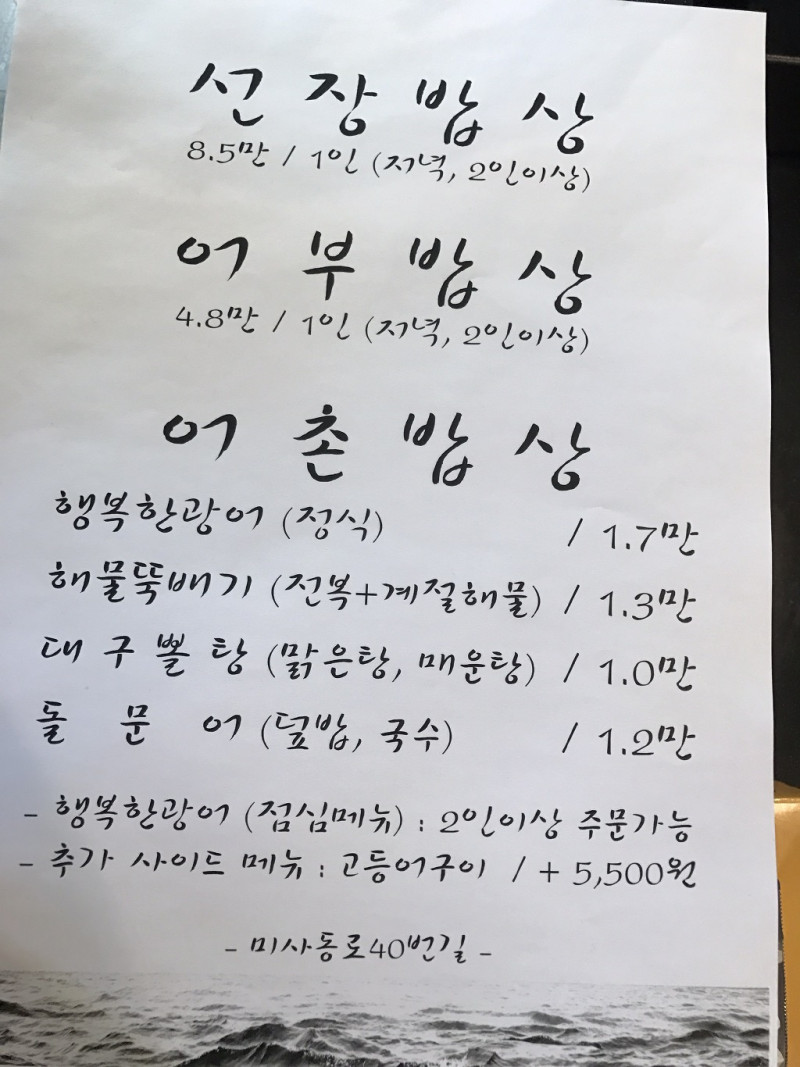 선장밥상
8.5만 / 1인 (저녁, 2인이상)
어부밥상
4.8만 / 1인 (저녁, 2인이상)
어촌밥상
행복한광어 (정식) / 1.7만
해물뚝배기 (전복+계절해물) / 1.3만
대구뽈탕 (맑은탕, 매운탕) / 1.0만
돌문어 (덮밥, 국수) / 1.2만
- 행복한광어 (점심메뉴) : 2인이상 주문가능
- 추가 사이드 메뉴 : 고등어구이 / + 5,500원
- 미사동로40번길 -